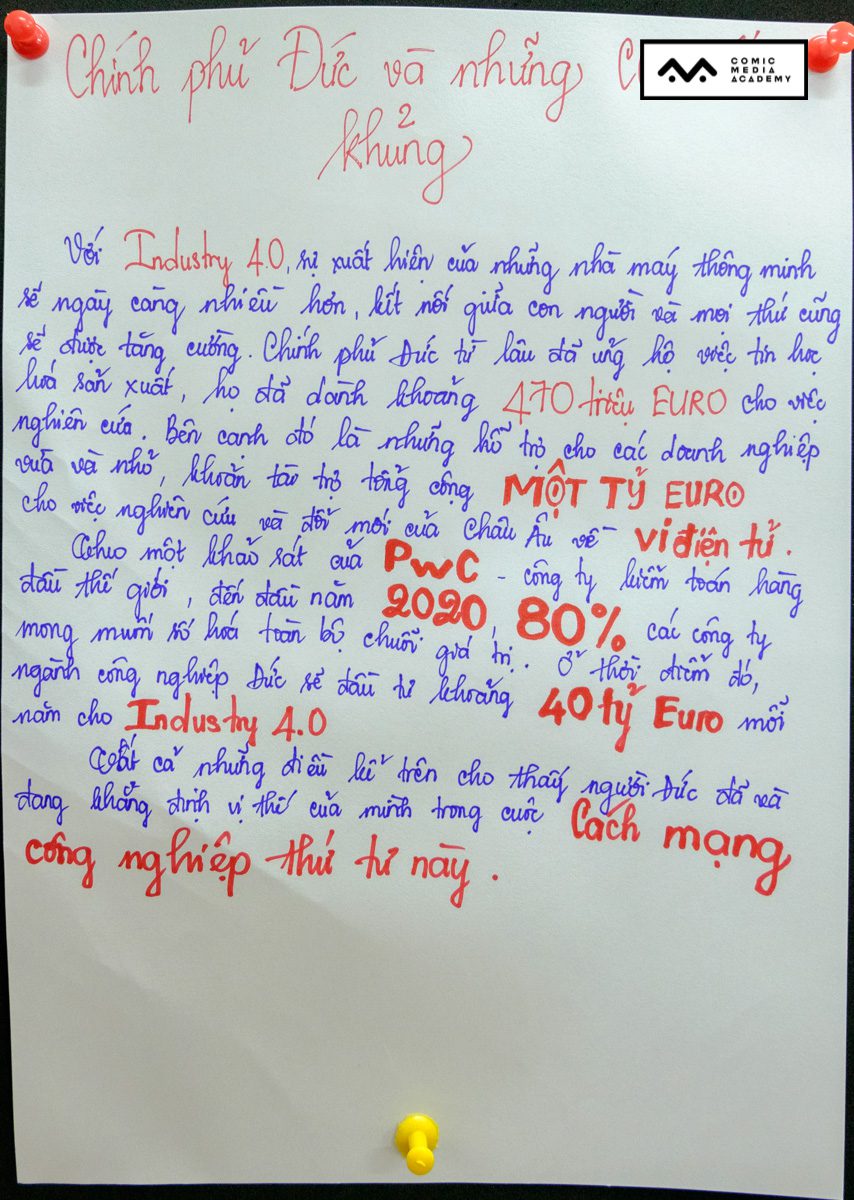 Chính phủ Đức và những
COMIC
MEDIA
ACADEMY
khủng
Với Industry 4.0, sự xuất hiện của những nhà máy thông minh
sẽ ngày càng nhiều hơn, kết nối giữa con người và mọi thứ cũng
sẽ được tăng cường. Chính phủ Đức từ lâu đã ủng hộ việc tin học
hoá sản xuất, họ đã dành khoảng 470 triệu EURO cho việc
nghiên cứu. Bên cạnh đó là những hỗ trợ cho các doanh nghiệp
vừa và nhỏ, khoản tài trợ tổng cộng MỘT TỶ EURO
cho việc nghiên cứu và đổi mới của Châu Âu về vi điện tử.
Theo một khảo sát của PwC - công ty kiểm toán hàng
đầu thế giới, đến đầu năm 2020, 80% các công ty
mong muốn số hoá toàn bộ chuỗi giá trị. Ở thời điểm đó,
ngành công nghiệp Đức sẽ đầu tư khoảng 40 tỷ Euro mỗi
năm cho Industry 4.0
Tất cả những điều kể trên cho thấy người Đức đã và
đang khẳng định vị thế của mình trong cuộc Cách mạng
công nghiệp thứ tư này.